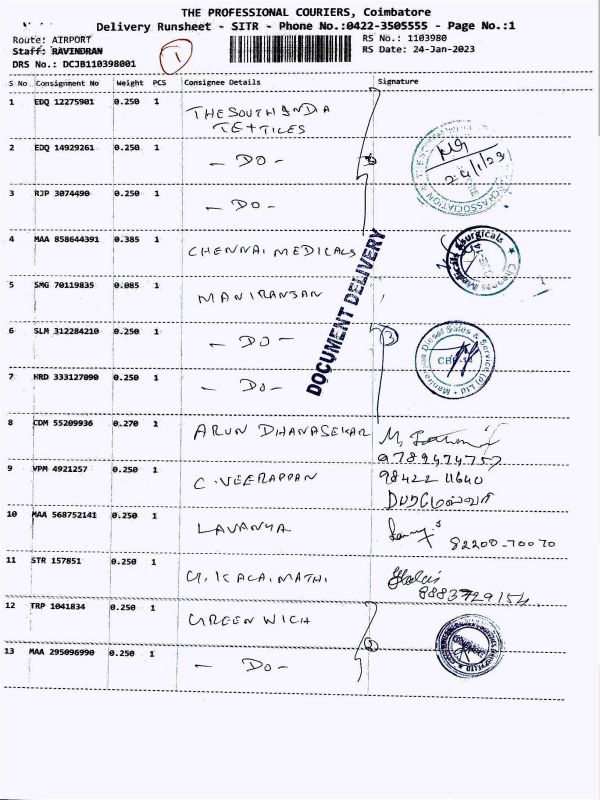 THE PROFESSIONAL COURIERS, Coimbatore
Delivery Runsheet - SITR - Phone No.:0422-3505555 - Page No.:1
Route: AIRPORT RS No.: 1103980
Staff: RAVINDRAN 1 RS Date: 24-Jan-2023
DRS No.: DCJB110398001
S No Consignment No Weight PCS Consignee Details Signature
1 EDQ 12275901 0.250 1 THE SOUTH INDIA
TEXTILES
2 EDQ 14929261 0.250 1 - DO -
24/1/23
3 RJP 3074490 0.250 1 - DO -
4 MAA 858644391 0.385 1 CHENNAI MEDICALS
5 SMG 70119835 0.085 1 MANIRANJAN
DOCUMENT DELIVERY
6 SLM 312284210 0.250 1 - DO - 3
Maniranjan Diesel Sales & Service (P) Ltd
7 NRD 333127090 0.250 1 - DO -
8 CDM 55209936 0.270 1 ARUN DHANASEKAR
9789474757
9 VPM 4921257 0.250 1 C. VEERAPPAN 98422 11640
10 MAA 568752141 0.250 1 LAVANYA
82200-70070
11 STR 157851 0.250 1 G. KALAIMATHI
8883729154
12 TRP 1041834 0.250 1 GREEN WICH
2
13 MAA 295096990 0.250 1 - DO -